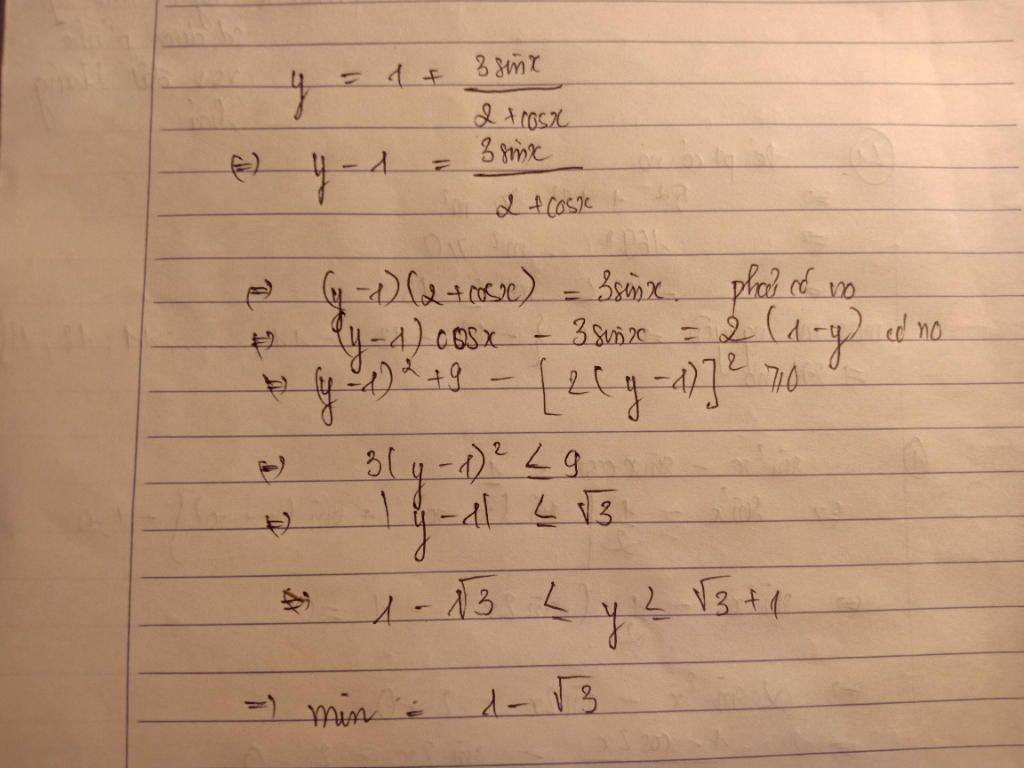 y = 1 + 3sinx / 2+cosx
⇔ y - 1 = 3sinx / 2+cosx
⇔ (y-1)(2+cosx) = 3sinx. phải có no
⇔ (y-1) cosx - 3sinx = 2(1-y) có no
⇔ (y-1)² + 9 - [2(y-1)]² ≥ 0
⇔ 3(y-1)² ≤ 9
⇔ |y-1| ≤ √3
⇔ 1-√3 ≤ y ≤ √3+1
⇒ min = 1-√3